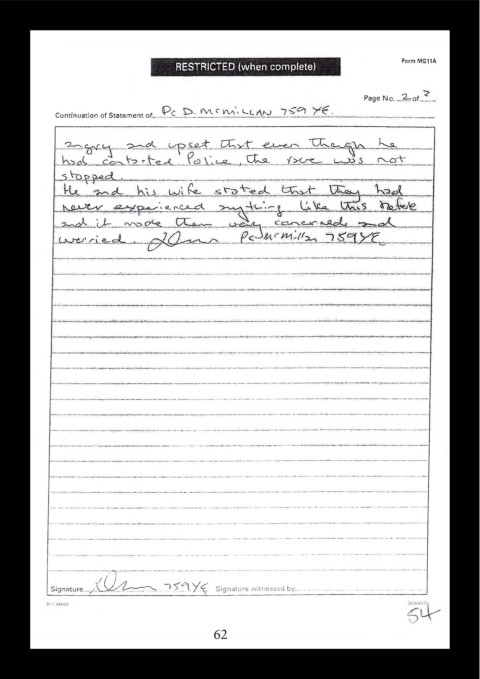 RESTRICTED (when complete)
Form MG11A
Page No. 2 of
Continuation of Statement of Pc D. McMILLAN 759 YE.
angry and upset that even though he
had contacted Police, the rave was not
stopped.
He and his wife stated that they had
never experienced anything like this before
and it made them very concerned and
worried. Pc McMillan 759YE
Signature 759YE Signature witnessed by
54
62